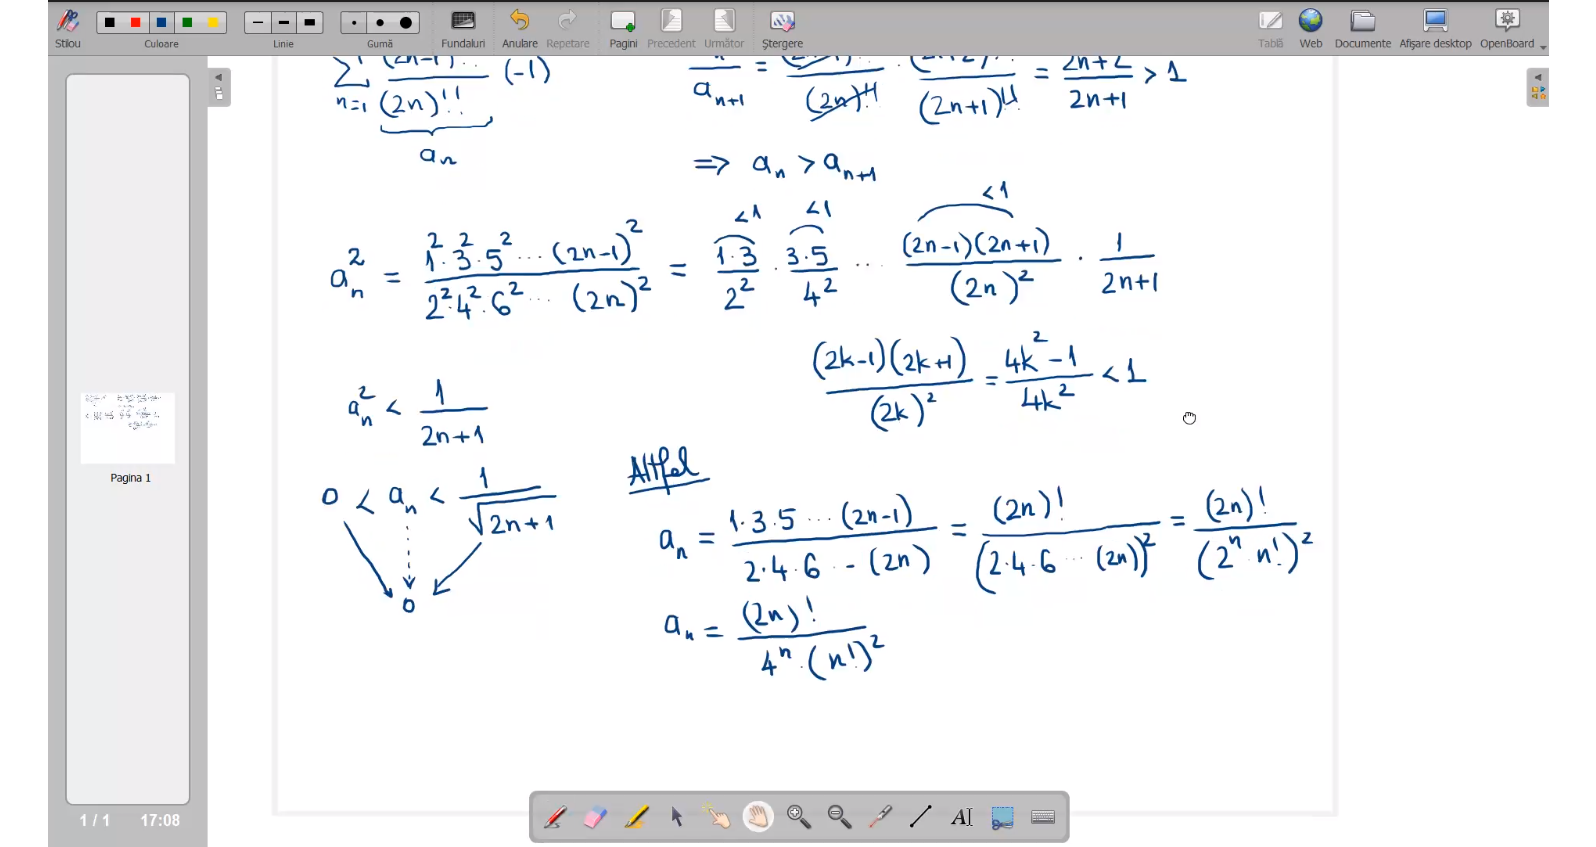 Stilou Culoare Linie Gumă Fundaluri Anulare Repetare Pagini Precedent Următor Ștergere Tablă Web Documente Afișare desktop OpenBoard
∑ n=1 (2n-1)!!/(2n)!! (-1)
a_n
/a_{n+1} = /(2n)!! · /(2n+1)!! = (2n+2)/(2n+1) > 1
⟹ a_n > a_{n+1}
<1 <1 <1
a_n^2 = (1^2·3^2·5^2 ··· (2n-1)^2)/(2^2·4^2·6^2 ··· (2n)^2) = (1·3)/2^2 · (3·5)/4^2 ··· ((2n-1)(2n+1))/(2n)^2 · 1/(2n+1)
((2k-1)(2k+1))/(2k)^2 = (4k^2-1)/(4k^2) < 1
a_n^2 < 1/(2n+1)
0 < a_n < 1/√(2n+1)
0
Altfel
a_n = (1·3·5 ··· (2n-1))/(2·4·6 ·· (2n)) = (2n)!/(2·4·6 ··· (2n))^2 = (2n)!/(2^n·n!)^2
a_n = (2n)!/(4^n·(n!)^2)
Pagina 1
1 / 1 17:08
AI